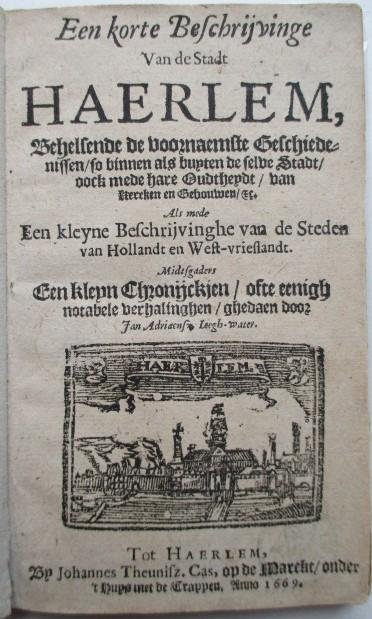 Een korte Beschrijvinge
Van de Stadt
HAERLEM,
Behelsende de voornaemste Geschiede-
nissen / so binnen als buyten de selve Stadt /
oock mede hare Oudtheydt / van
Kercken en Gebouwen / &c.
Als mede
Een kleyne Beschrijvinghe van de Steden
van Hollandt en West-vrieslandt.
Midtsgaders
Een kleyn Chronijckjen / ofte eenigh
notabele verhalinghen / ghedaen door
Jan Adriaensz. Leegh-water.
HAER LEM.
Tot HAERLEM,
By Johannes Theunisz. Cas, op de Marckt / onder
't Huys met de Trappen, Anno 1669.